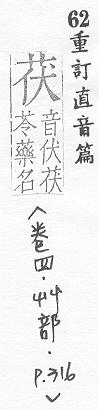 62重訂直音篇
茯
音伏茯
苓藥名
〈卷四·艸部·P.316〉